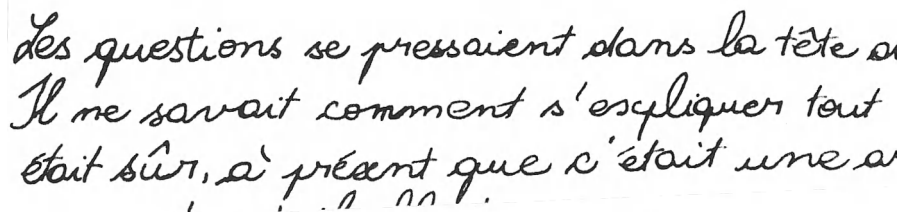 Les questions se pressaient dans la tête
Il ne savait comment s'expliquer tout
était sûr, à présent que c'était une